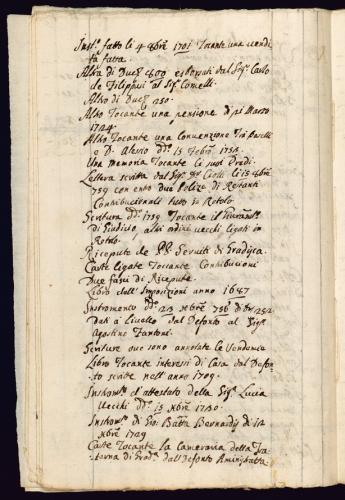 Instro. fatto li 4 8bre 1701 Tocante una vendi
ta fatta.
Altra di Duc. 800 esborsati dal Sigr. Carlo
de Filippusi al Sigr. Comelli.
Altro di Duc. 250.
Altro Tocante una pensione di pi Marzo
1724.
Altro Tocante una Convenzione Trà
e D. Alessio dto. 15 Febro. 1755.
Una memoria Tocante li suoi Credi.
Lettera scritta dal Sigr. Ciotti li 15 8bre
759 con ento due Polize di Restanti
Contribucionali tutto in Rotolo.
Scritura dto. 1759 Tocante il
di Giudizio, altri ordini vecchi ligati in
Rotolo.
Ricepute de PP. Serviti di Gradisca.
Carte ligate Toccante Contribucioni
Due fassi di Ricepute.
Libro dell' Imposizioni anno 1647
Instromento dto. 23 Xbre 756 di Dti 252
Dati a Livello dal Defonto al Sigr.
Agostino Fantoni.
Scriture ove sono annotate le Vendemie
Libro Tocante interessi di Casa dal Defon-
to scritte nell' anno 1709.
Instromto. d'attestato della Sigra. Lucia
Vecchi dto. 15 Xbre 1740.
Instromto. di Gio Batta Bernardis di 12
Xbre 1729
Carte Tocante la Cameraria della Fra-
terna di Grado. dall Defonto